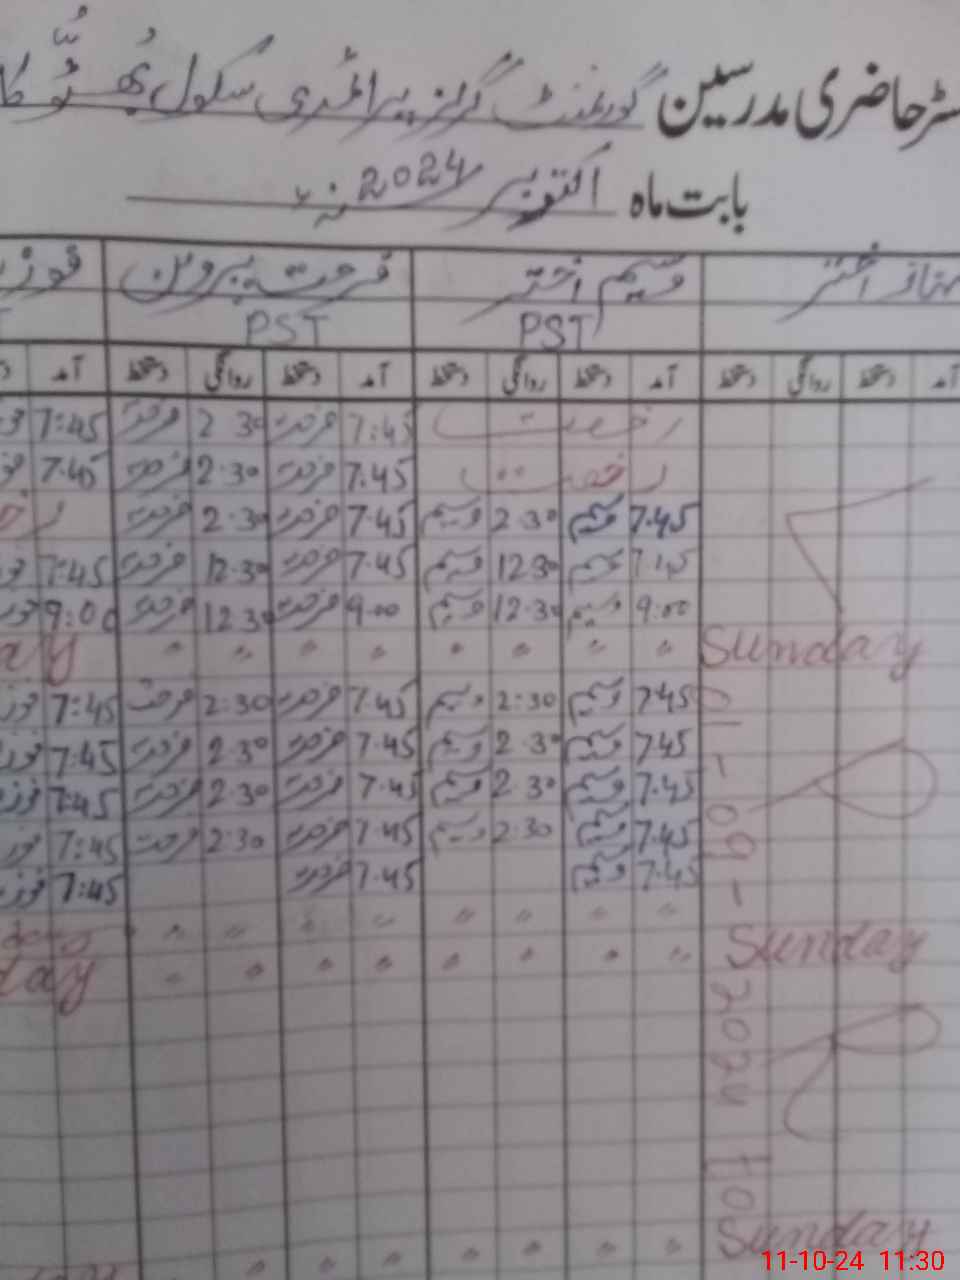 سٹر حاضری مدرسین گورنمنٹ گرلز پرائمری سکول
بابت ماہ اکتوبر 2024ء
ممتاز اختر وسیم اختر فرحت پروین
PST PST
آمد دستخط روانگی دستخط آمد دستخط روانگی دستخط آمد دستخط روانگی دستخط آمد
رخصت 7:45 فرحت 2 30 فرحت 7:45
رخصت 7.45 فرحت 2.30 فرحت 7.45
7.45 وسیم 2.30 وسیم 7.45 فرحت 2.30 فرحت
وسیم 12 30 وسیم 7.45 فرحت 12.30 فرحت 7:45
9:00 وسیم 12.30 وسیم 9.00 فرحت 12.30 فرحت 9:00
Sunday " " " " " " " " ay
7.45 وسیم 2:30 وسیم 7.45 فرحت 2:30 فرحت 7:45
7.45 وسیم 2.30 وسیم 7.45 فرحت 2.30 فرحت 7.45
7.45 وسیم 2.30 وسیم 7.45 فرحت 2.30 فرحت 7:45
7.45 وسیم 2.30 وسیم 7.45 فرحت 2.30 فرحت 7:45
7.45 وسیم 7.45 فرحت 7:45
" " " " " " " "
Sunday " " " " " " " " day
Sunday " " " " " " " "
01-09-2024 to
11-10-24 11:30